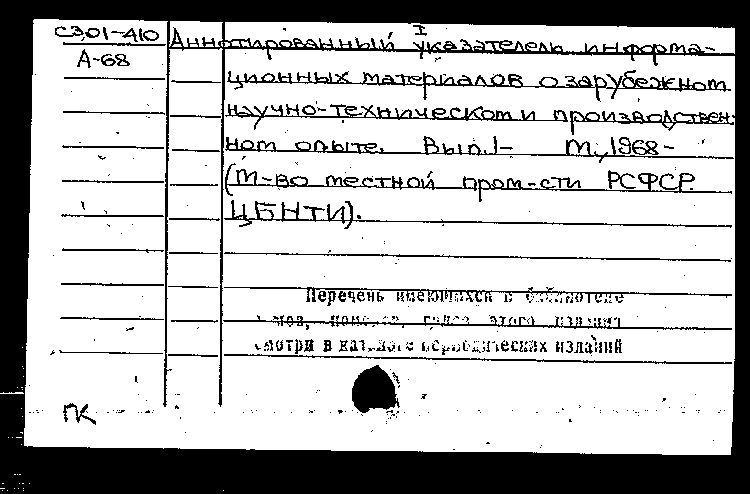 СЭ01-410
А-68
I
Аннотированный указателель информа-
ционных материалов о зарубежном
научно-техническом и производствен-
ном опыте. Вып.1- М., 1968-
(М-во местной пром-сти РСФСР.
ЦБНТИ).
Перечень имеющихся в библиотеке
томов, номеров, годов этого издания
смотри в каталоге периодических изданий
ПК